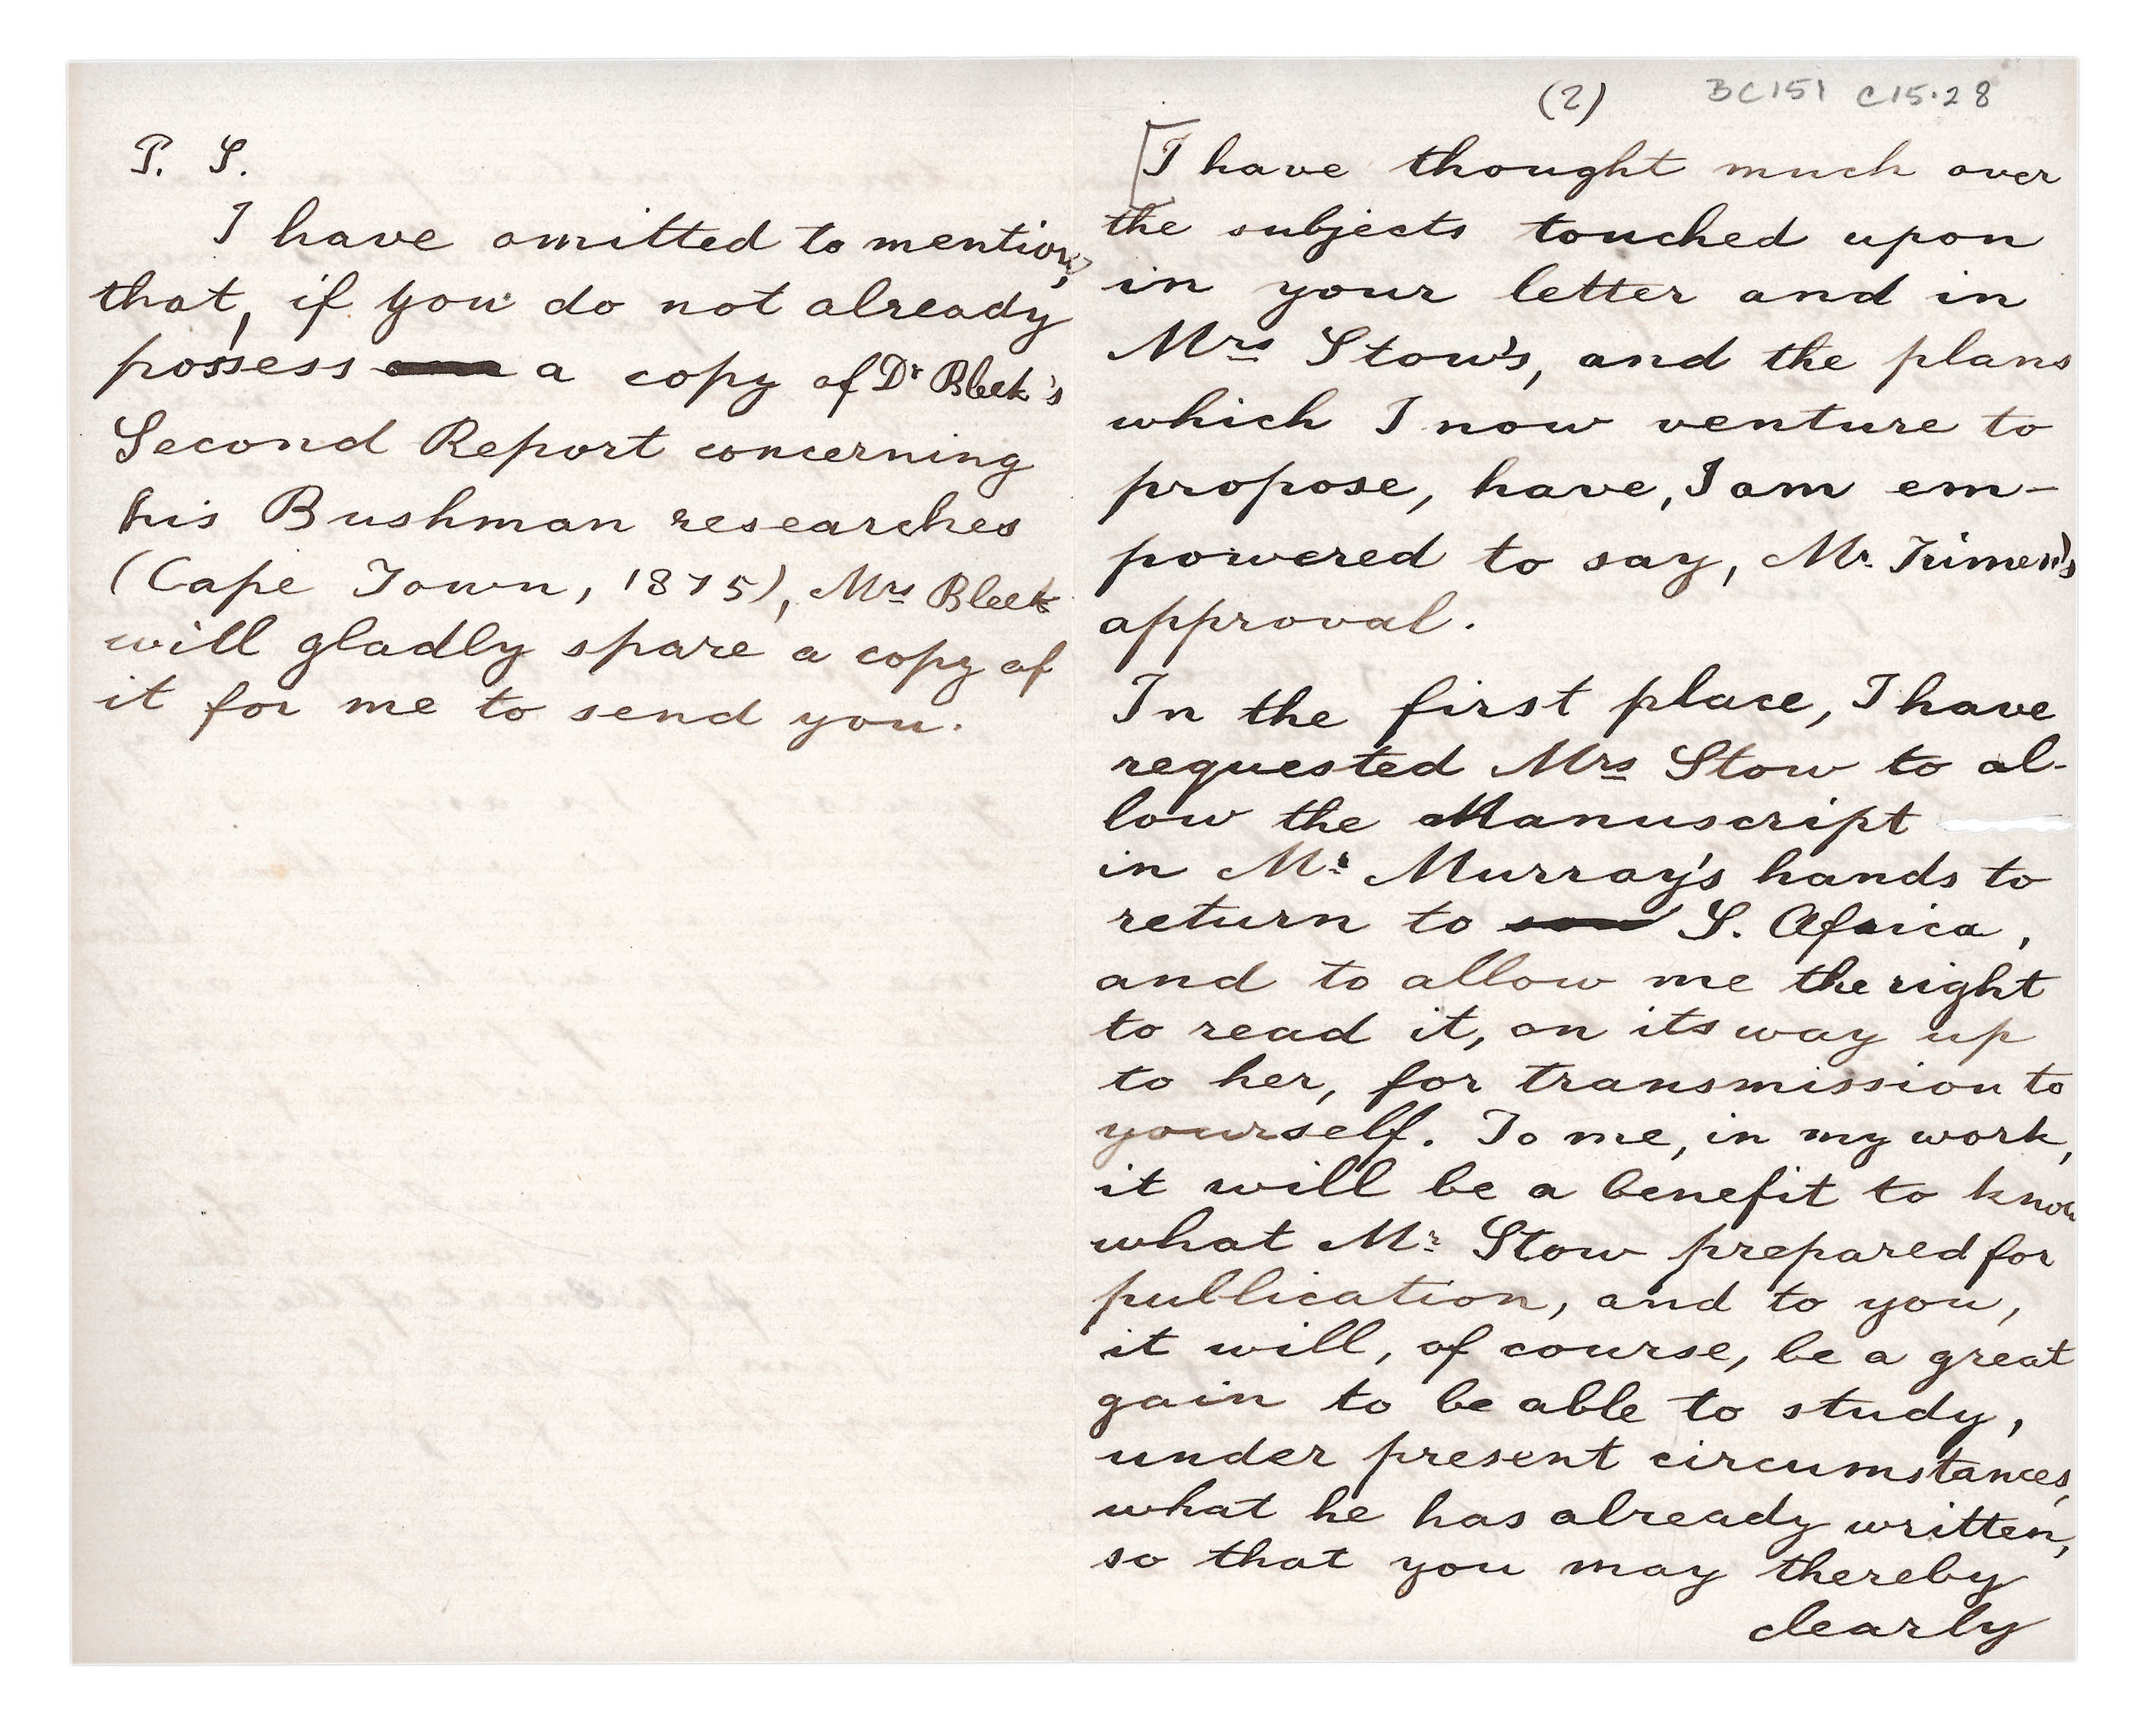 P. S.
I have omitted to mention,
that, if you do not already
possess a copy of Dr Bleek's
Second Report concerning
his Bushman researches
(Cape Town, 1875), Mrs Bleek
will gladly spare a copy of
it for me to send you.
(2) BC151 C15.28
[I have thought much over
the subjects touched upon
in your letter and in
Mrs Stow's, and the plans
which I now venture to
propose, have, I am em-
powered to say, Mr. Trimen's
approval.
In the first place, I have
requested Mrs Stow to al-
low the Manuscript
in Mr Murray's hands to
return to S. Africa,
and to allow me the right
to read it, on its way up
to her, for transmission to
yourself. To me, in my work,
it will be a benefit to know
what Mr Stow prepared for
publication, and to you,
it will, of course, be a great
gain to be able to study,
under present circumstances,
what he has already written,
so that you may thereby
clearly